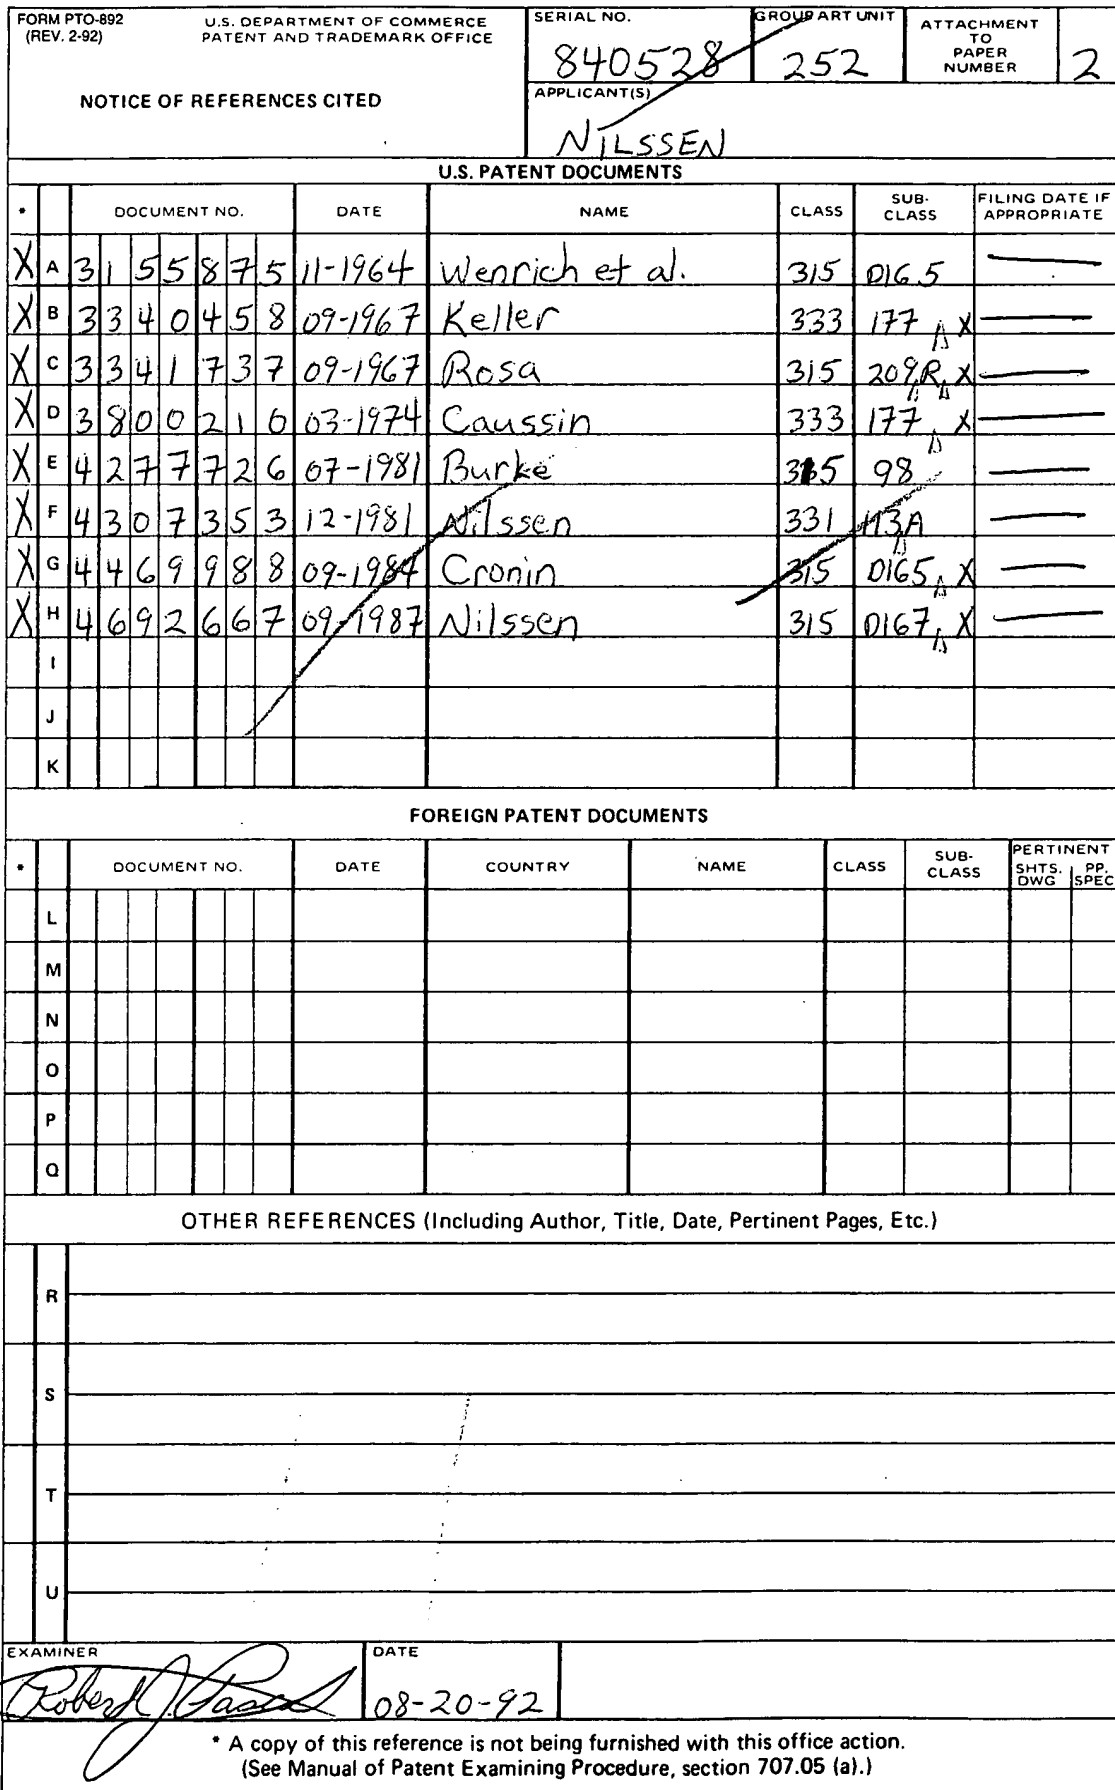 FORM PTO-892
(REV. 2-92)
U.S. DEPARTMENT OF COMMERCE
PATENT AND TRADEMARK OFFICE
NOTICE OF REFERENCES CITED
SERIAL NO.
840528
GROUP ART UNIT
252
ATTACHMENT
TO
PAPER
NUMBER
2
APPLICANT(S)
NILSSEN
U.S. PATENT DOCUMENTS
* DOCUMENT NO. DATE NAME CLASS SUB-CLASS FILING DATE IF APPROPRIATE
X A 3155875 11-1964 Wenrich et al. 315 D16.5 —
X B 3340458 09-1967 Keller 333 177 X —
X C 3341737 09-1967 Rosa 315 209 R X —
X D 3800210 03-1974 Caussin 333 177 X —
X E 4277726 07-1981 Burke 315 98 —
X F 4307353 12-1981 Nilssen 331 113A —
X G 4469988 09-1984 Cronin 315 D165 X —
X H 4692667 09-1987 Nilssen 315 D167 X —
I
J
K
FOREIGN PATENT DOCUMENTS
* DOCUMENT NO. DATE COUNTRY NAME CLASS SUB-CLASS PERTINENT SHTS. DWG PP. SPEC
L
M
N
O
P
Q
OTHER REFERENCES (Including Author, Title, Date, Pertinent Pages, Etc.)
R
S
T
U
EXAMINER
Robert J.
DATE
08-20-92
* A copy of this reference is not being furnished with this office action.
(See Manual of Patent Examining Procedure, section 707.05 (a).)